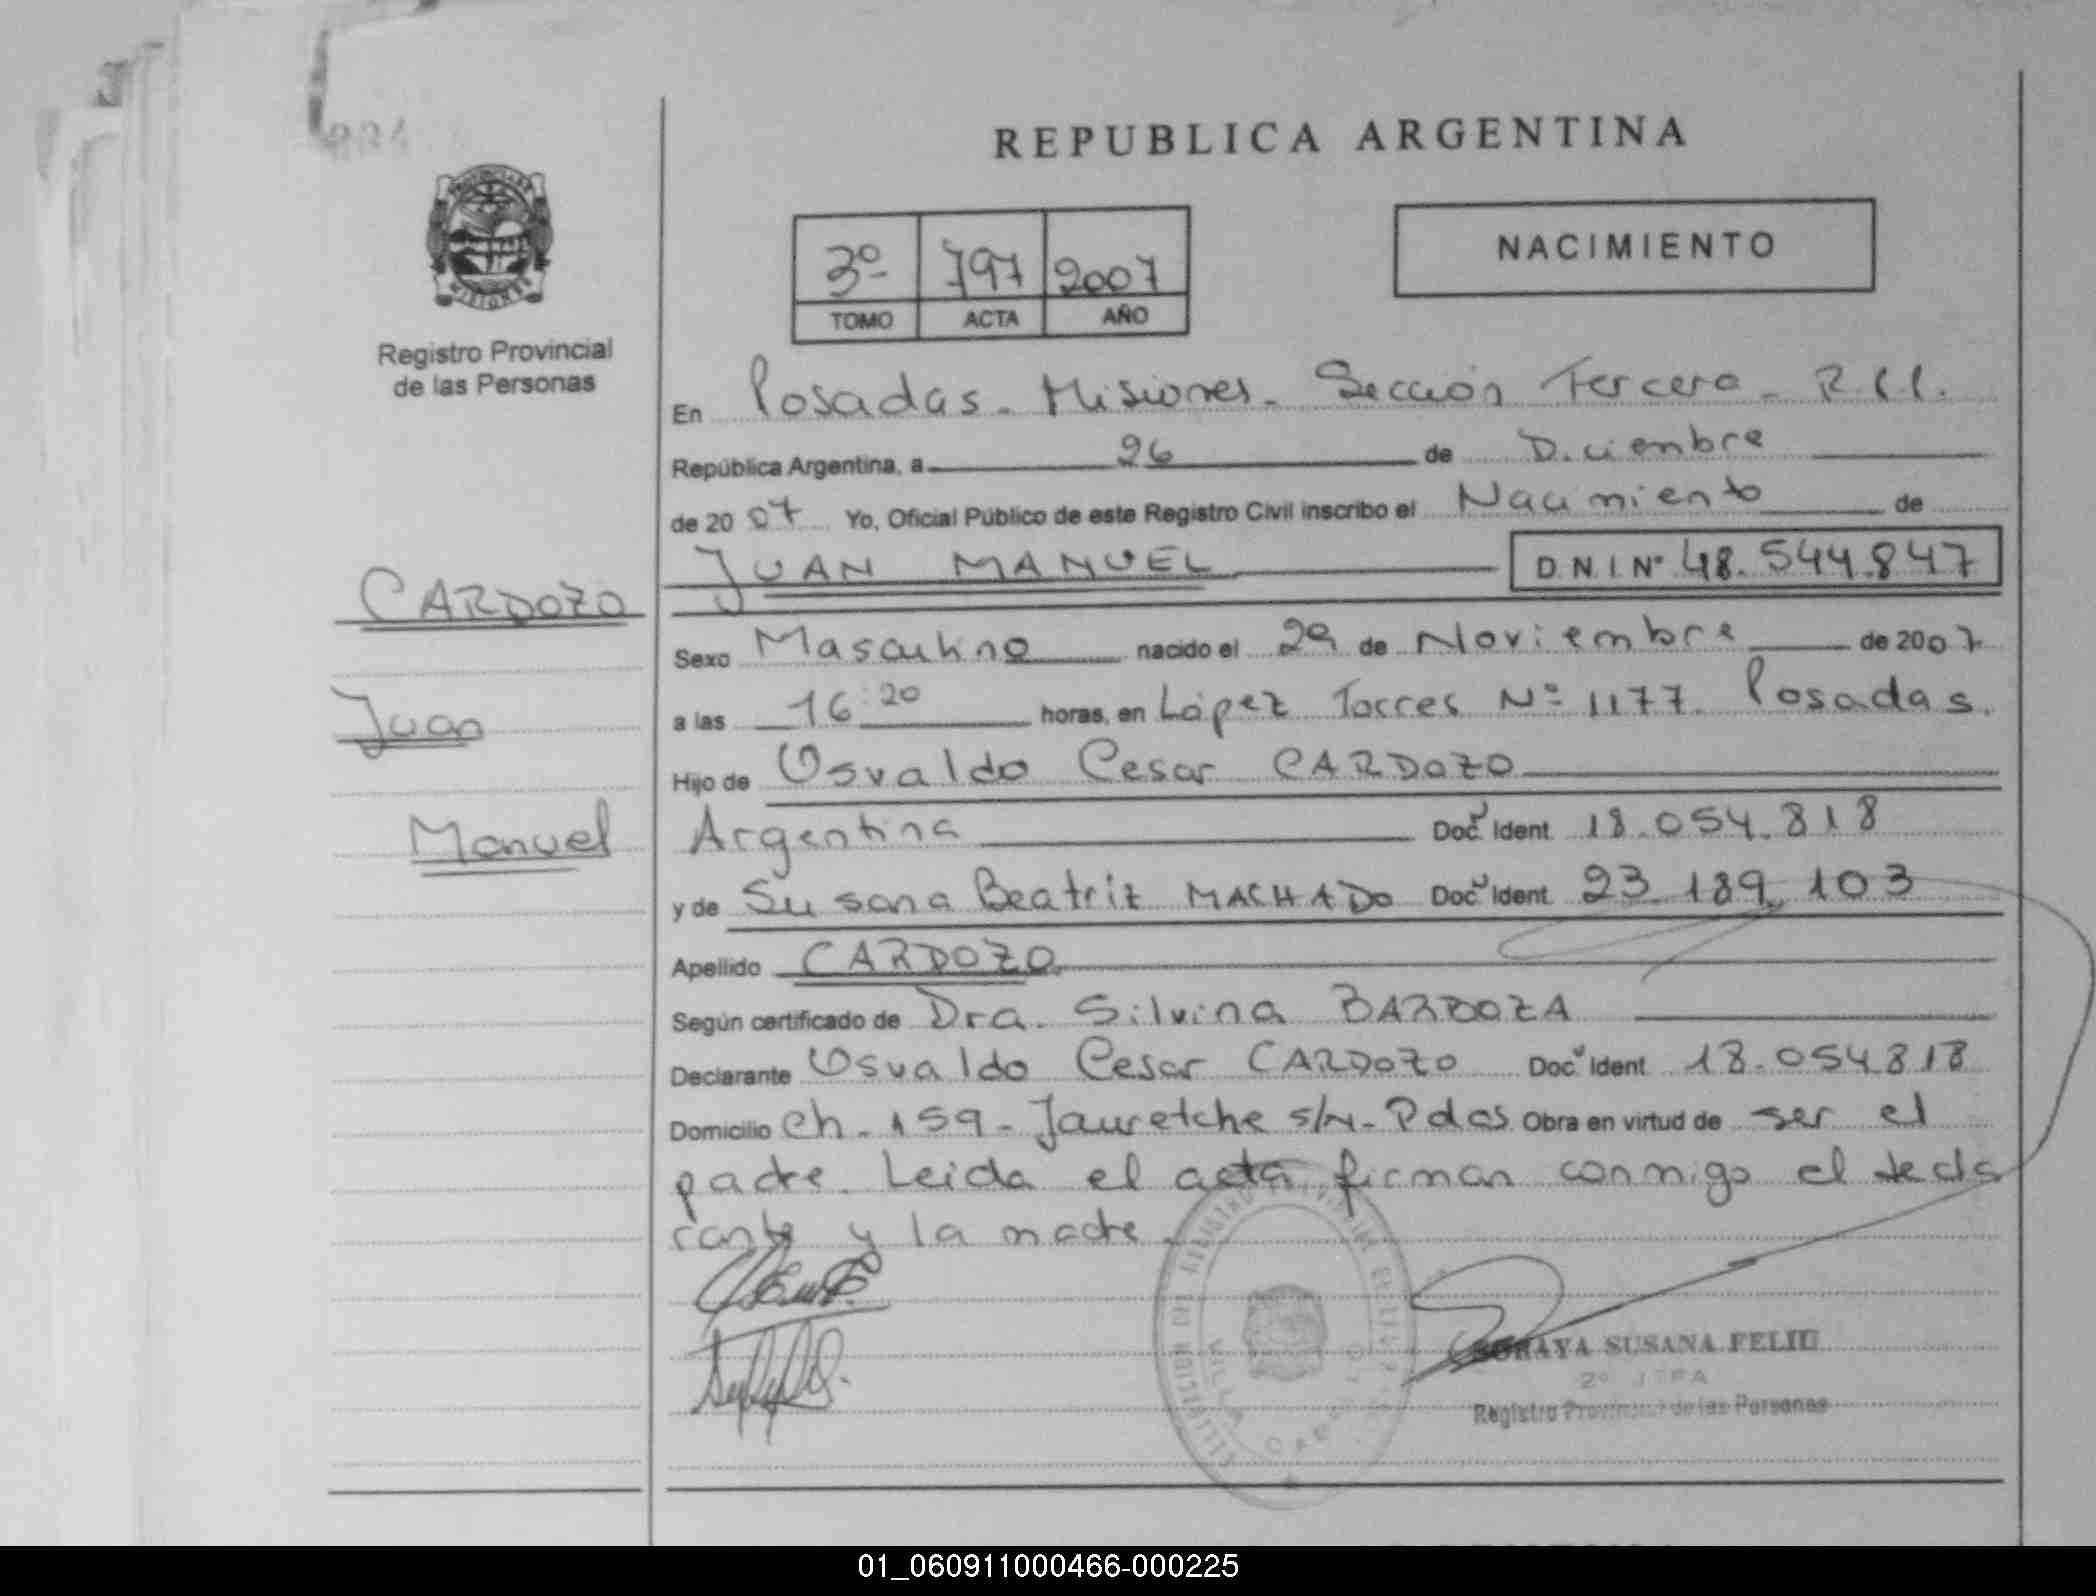 REPUBLICA ARGENTINA
PROVINCIA DE
MISIONES
Registro Provincial
de las Personas
3º 797 2007
TOMO ACTA AÑO
NACIMIENTO
En Posadas - Misiones - Sección Tercera - R.C.C.
República Argentina, a 26 de Diciembre
de 2007 Yo, Oficial Público de este Registro Civil inscribo el Nacimiento de
JUAN MANUEL D.N.I. Nº 48.544.847
CARDOZO
Sexo Masculino nacido el 29 de Noviembre de 2007
Juan
a las 16:20 horas, en López Torres Nº 1177. Posadas.
Hijo de Osvaldo Cesar CARDOZO
Manuel
Argentina Doc. Ident 18.054.818
y de Susana Beatriz MACHADO Doc. Ident. 23.189.103
Apellido CARDOZO
Según certificado de Dra. Silvina BARBOZA
Declarante Osvaldo Cesar CARDOZO Doc. Ident 18.054.818
Domicilio Ch. 159 - Jauretche s/N - Pdas Obra en virtud de ser el
padre. Leida el acta firman conmigo el decla
rante y la madre.
SORAYA SUSANA FELIU
Registro Provincial de las Personas
VILLA CABELLO
01_060911000466-000225